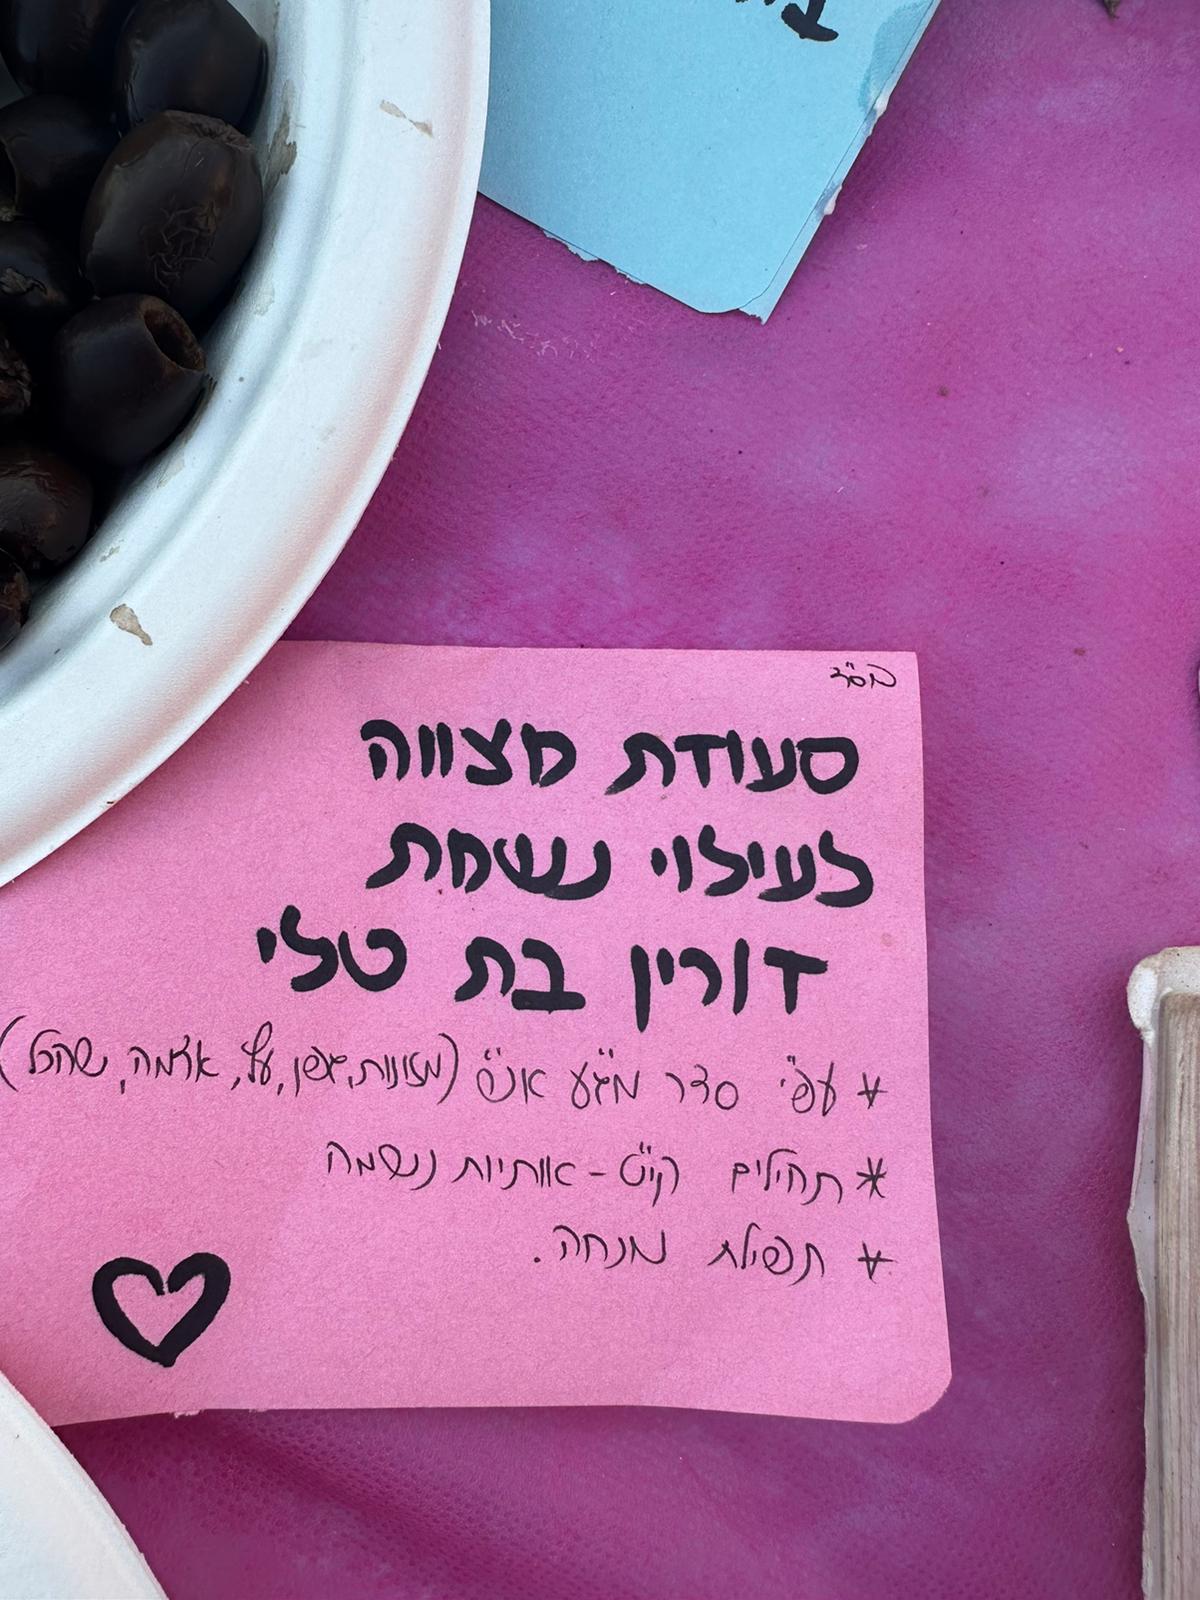 בס"ד
סעודת מצווה
לעילוי נשמת
דורין בת טלי
* עפ"י סדר מג"ע א"ש (מזונות, גפן, עץ, אדמה, שהכל)
* תהילים קי"ט - אותיות נשמה
* תפילת מנחה.